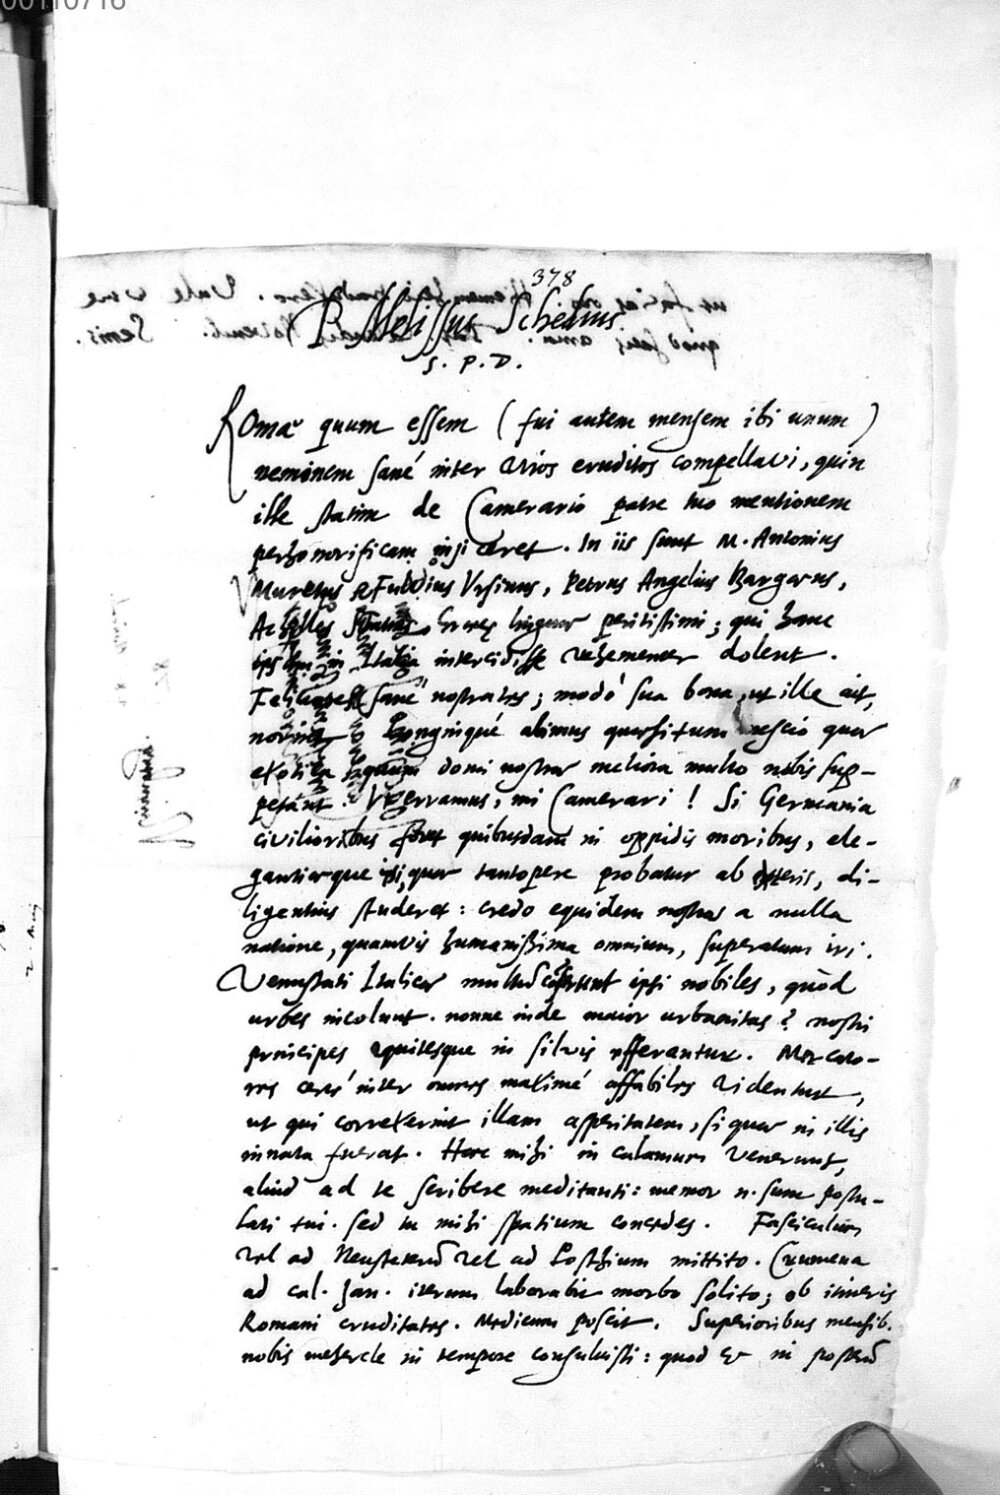 00110716
378
P. Melissus Schedius
S. P. D.
Romae quum essem (fui autem mensem ibi unum)
neminem sané inter viros eruditos compellavi, quin
ille statim de Camerario patre tuo mentionem
perhonorificam injiceret. In iis sunt M. Antonius
Muretus & Fulvius Ursinus, Petrus Angelius Bargaeus,
Achilles Statius, linguae peritissimi; qui hanc
ipsam in Italia intercidisse vehementer dolent.
Felices sané nostrates; modó sua bona, ut ille ait,
norint. Longinqué abimus quaesitum nescio quae
exotica quum domi nostrae meliora multo nobis sup-
petant. Vt erramus, mi Camerari! Si Germania
civilioribus foret quibusdam in oppidis moribus, ele-
gantiaeque isti, quae tantopere probatur ab exteris, di-
ligentius studeret: credo equidem nostras a nulla
natione, quamvis humanissima omnium, superatum iri.
Venustati Italicae multum conferunt ipsi nobiles, quòd
urbes incolunt. nonne inde maior urbanitas? nostri
principes equitesque in silvis efferantur. Mercato-
res certé inter omnes maximé affabiles videntur,
ut qui correxerint illam asperitatem, si quae in illis
innata fuerat. Haec mihi in calamum venerunt,
aliud ad te scribere meditanti: memor n. sum postu-
lati tui. sed tu mihi spatium concedes. Fasciculum
vel ad vel ad Posthium mittito. Crumena
ad cal. Jan. iterum laborabit morbo solito; ob itineris
Romani cruditates. Medicum poscit. Superioribus mensib.
nobis mehercle in tempore consuluisti: quod & in posterū